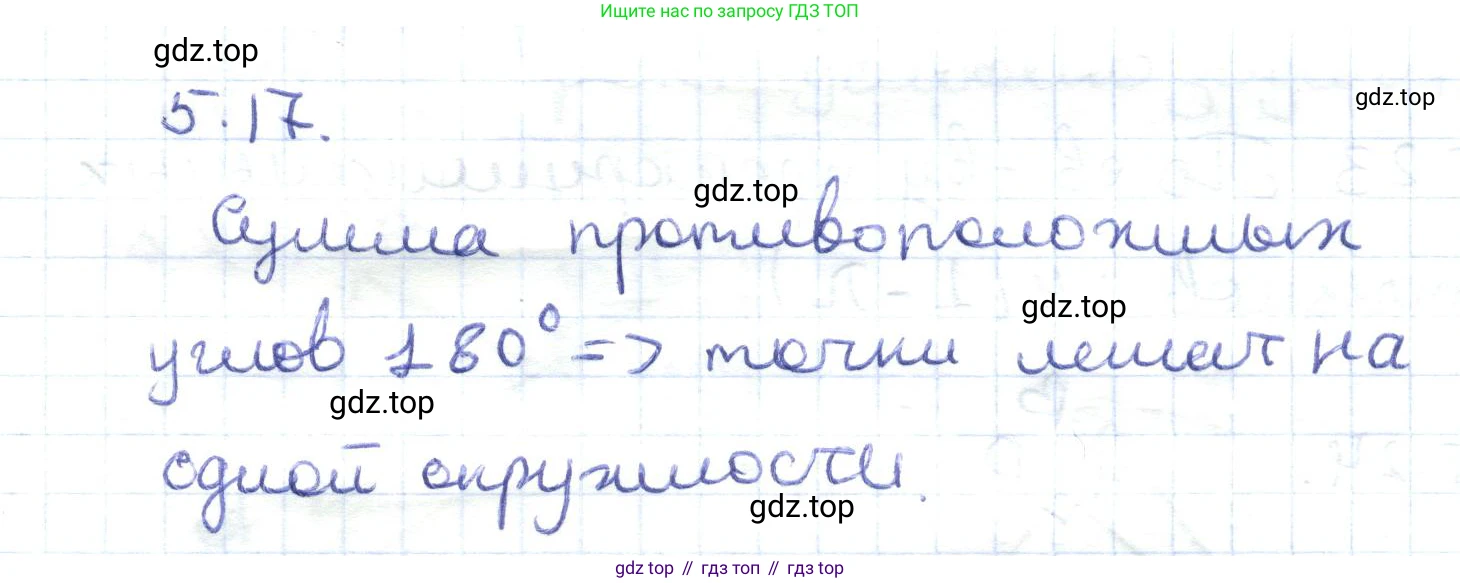 Ищите нас по запросу ГДЗ ТОП
gdz.top
5.17.
gdz.top
gdz.top
Сумма противоположных
gdz.top
углов 180° => точки лежат на
gdz.top
одной окружности.
gdz.top
gdz top // гдз топ // гдз top